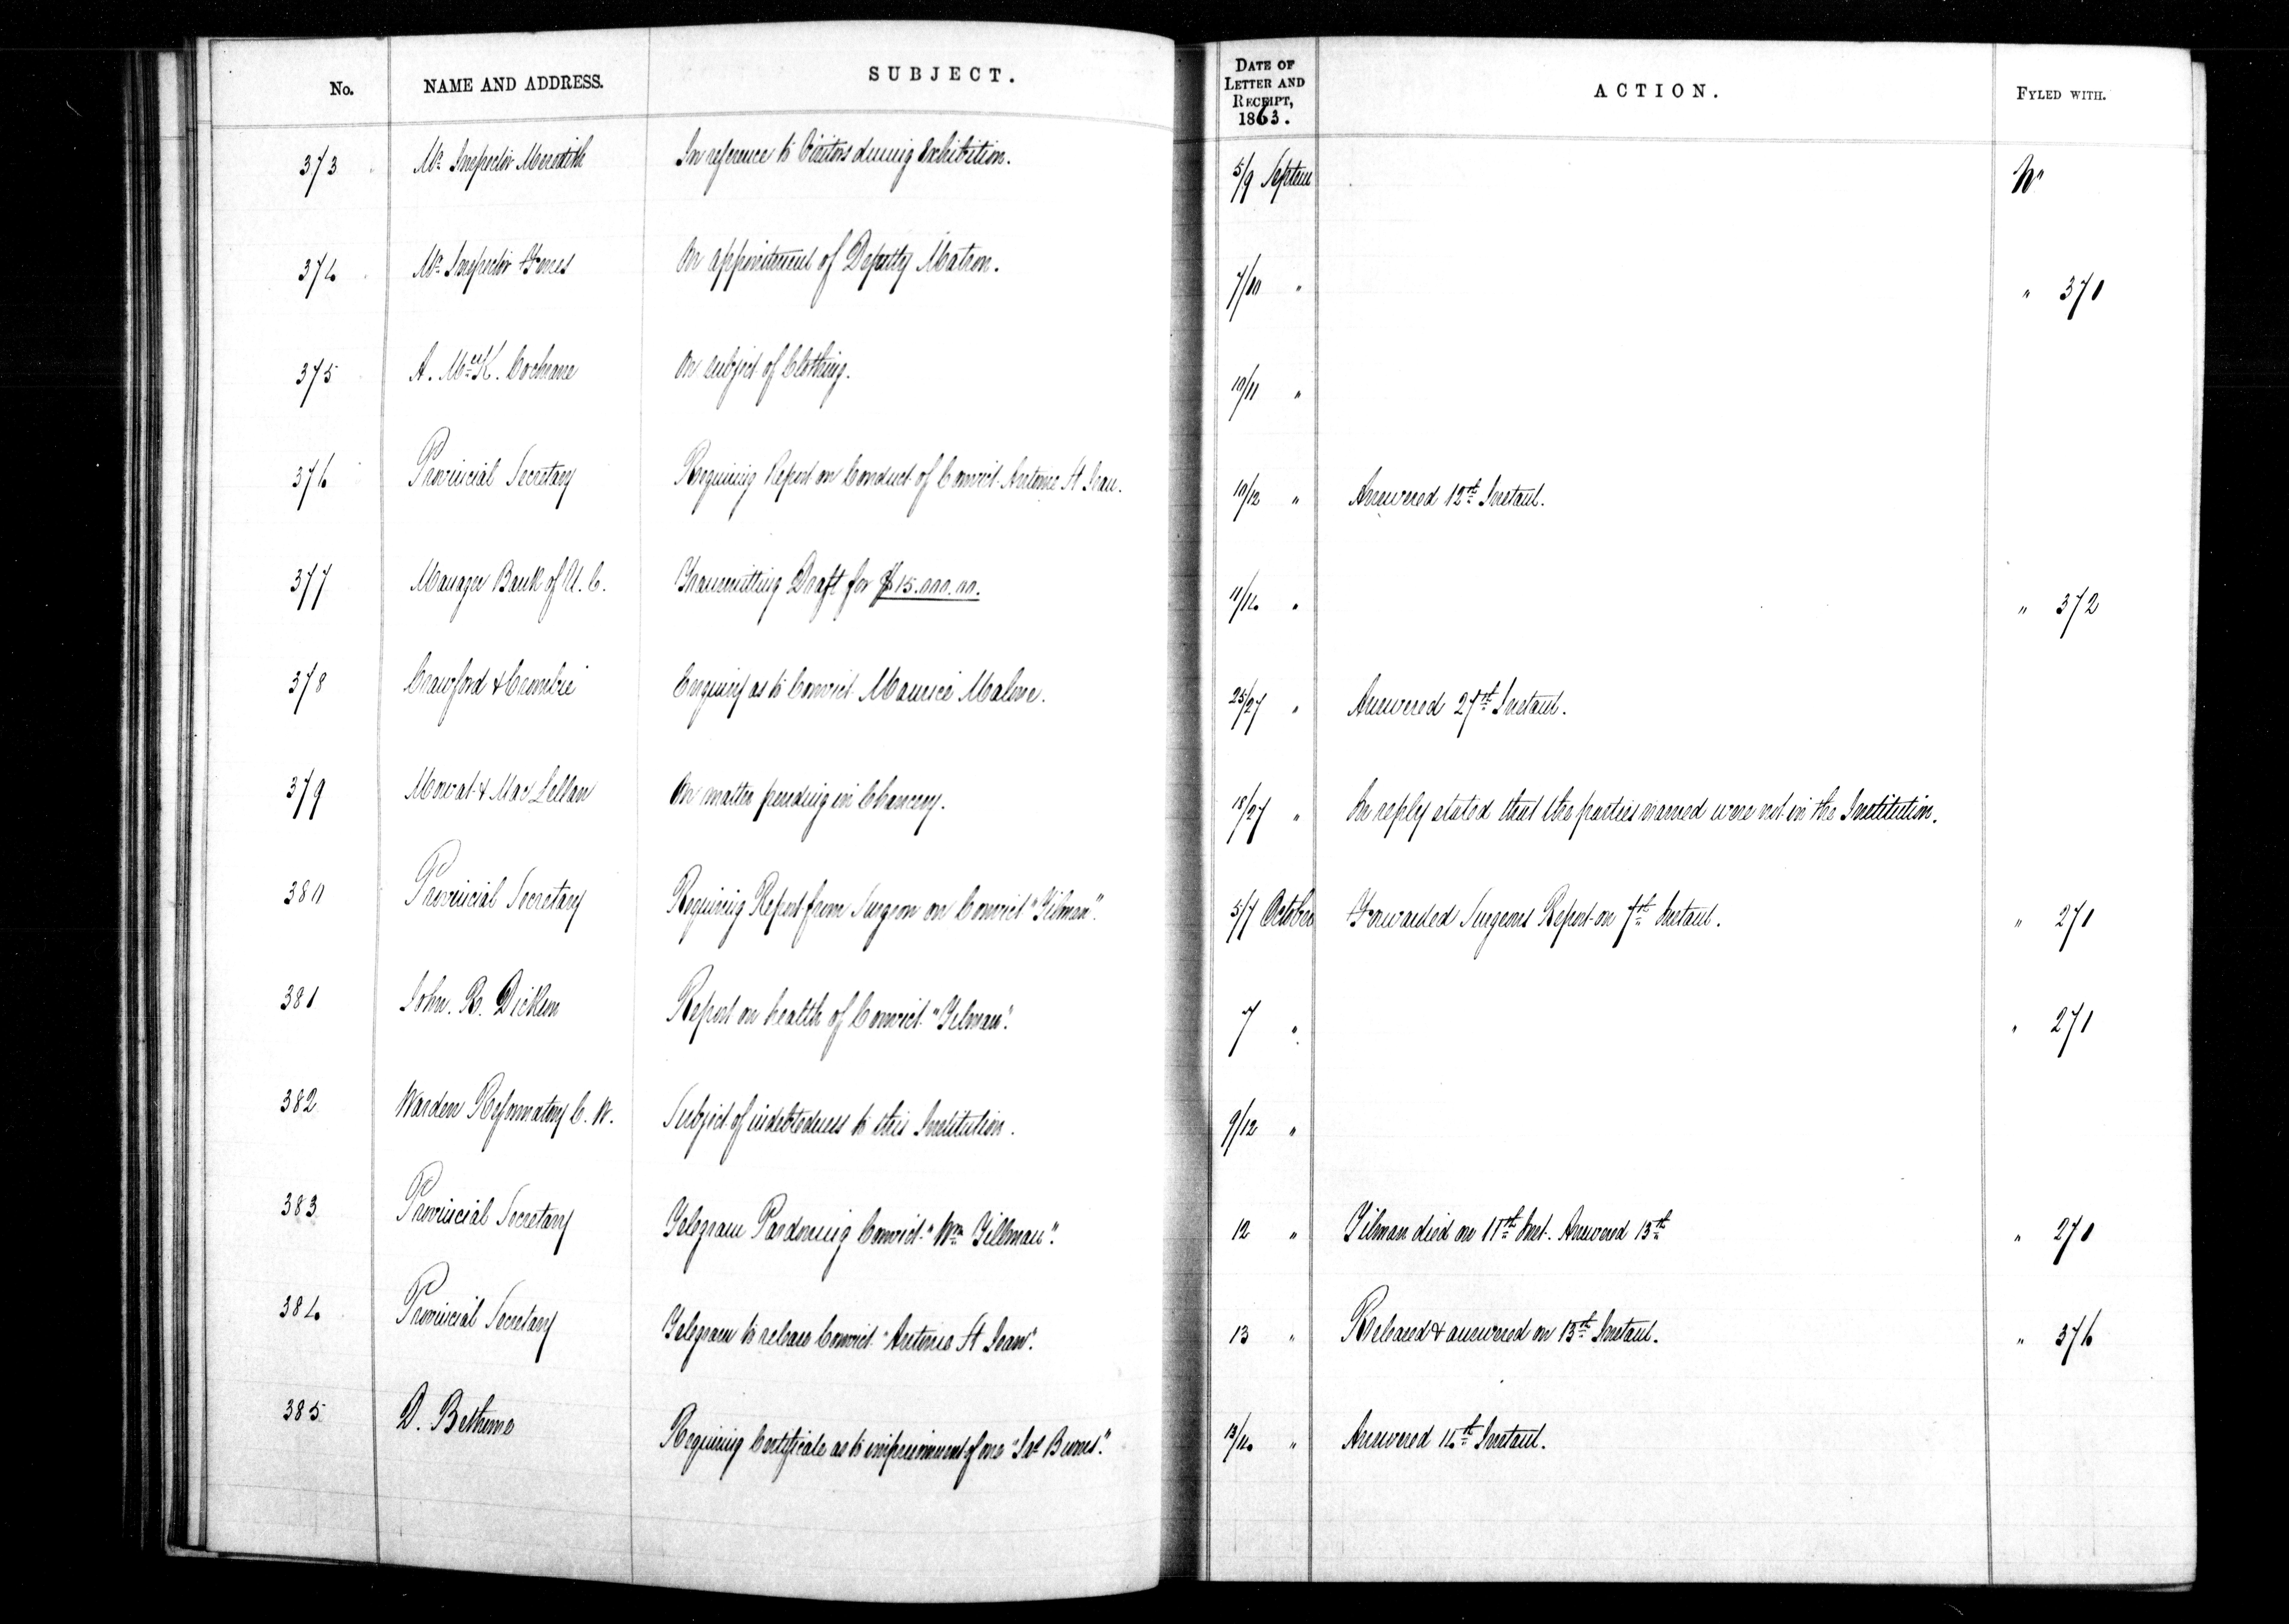 No. NAME AND ADDRESS. SUBJECT. DATE OF LETTER AND RECEIPT, 1863. ACTION. FYLED WITH.
373 Mr. Inspector Meredith In reference to Visitors during Exhibition. 5/9 Septem
374 Mr. Inspector Ferres On appointment of Deputy Matron. 7/10 " " 370
375 A. McK. Cochrane On subject of Clothing. 10/11 "
376 Provincial Secretary Requiring Report on Conduct of Convict Antoine St Jean. 10/12 " Answered 12th Instant.
377 Manager Bank of U. C. Transmitting Draft for $15.000.00. 11/14 " " 372
378 Crawford & Crombie Enquiry as to Convict Maurice Malone. 25/27 " Answered 27th Instant.
379 Mowat & MacLellan On matter pending in Chancery. 18/27 " In reply stated that the parties named were not in the Institution.
380 Provincial Secretary Requiring Report from Surgeon on Convict "Tilman". 5/7 October Forwarded Surgeons Report on 7th Instant. " 271
381 John. R. Dickson Report on health of Convict "Tilman". 7 " " 271
382 Warden Reformatory C. W. Subject of indebtedness to this Institution. 9/12 "
383 Provincial Secretary Telegram Pardoning Convict "Wm Tillman". 12 " Tilman died on 11th Inst. Answered 13th " 271
384 Provincial Secretary Telegram to release Convict "Antoine St Jean". 13 " Released & answered on 13th Instant. " 376
385 D. Bethune Requiring Certificate as to imprisonment of one "Jas Burns". 13/14 " Answered 14th Instant.